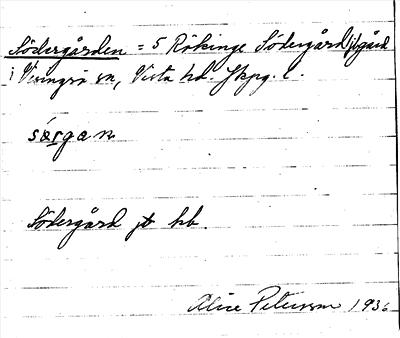 Södergården = 5 Rökinge Södergård jbgård
i Visingsö sn, Vista hd. Jkpg. l.
särgan
Södergård jb hb.
Alice Petersson 1936